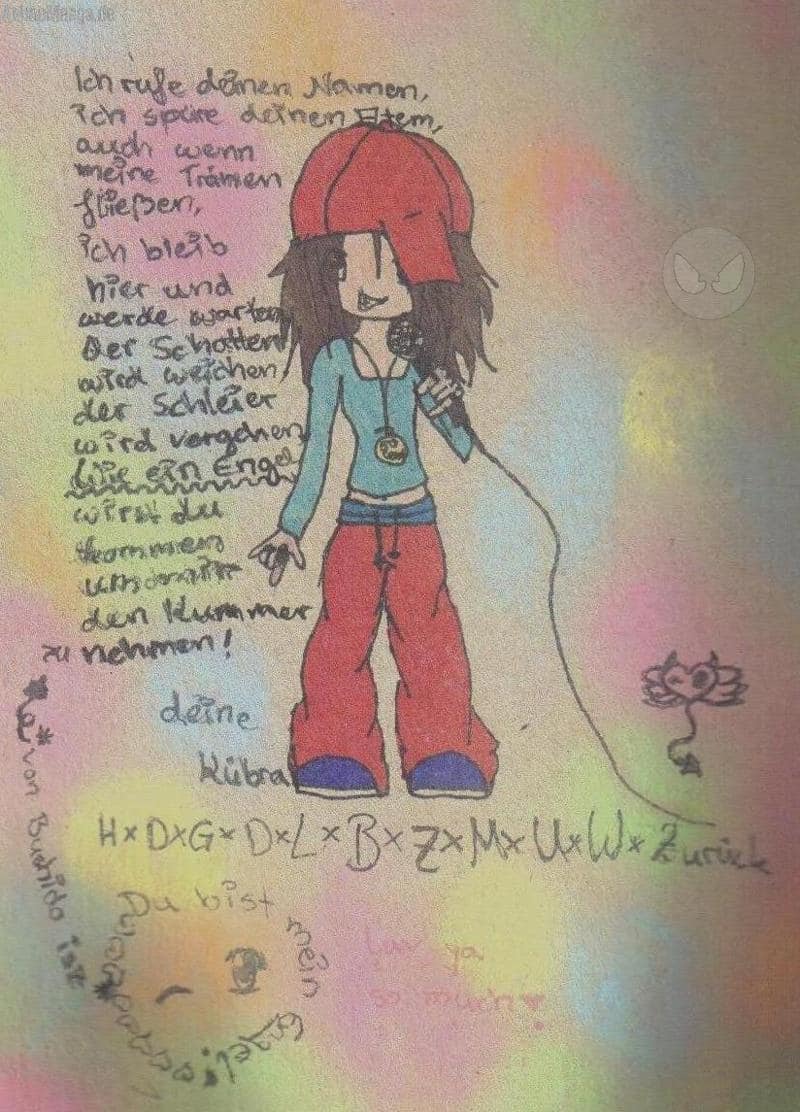 AnimeManga.de
Ich rufe deinen Namen,
ich spüre deinen Atem,
auch wenn
meine Tränen
fließen,
ich bleib
hier und
werde warten
Der Schatten
wird weichen
der Schleier
wird vergehen
Wie ein Engel
wirst du
kommen
um mir
den Kummer
zu nehmen!
deine
Kübra
H×D×G×D×L×B×Z×M×U×W×Zurück
von Bushido ist
Du bist mein Engel
luv ya
so much